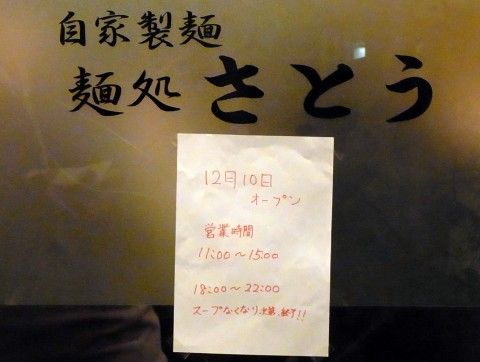 自家製麺
麺処 さとう
12月10日
オープン
営業時間
11:00～15:00
18:00～22:00
スープなくなり次第、終了!!